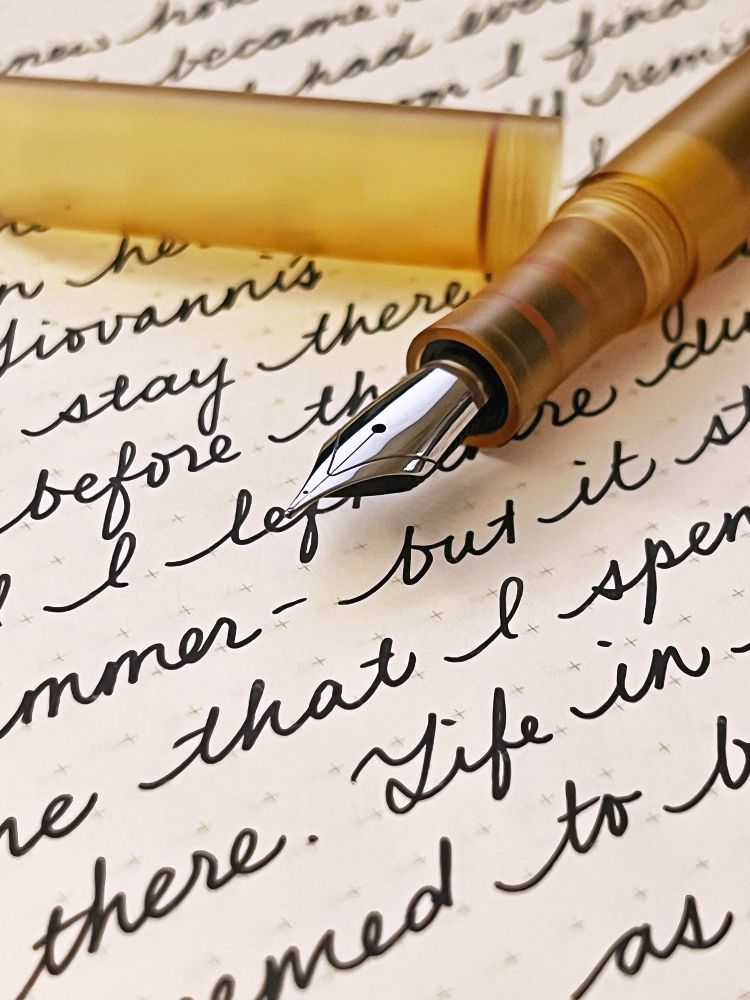 how
became,
had
I find
he
Giovanni's
stay there
before th
I left ere du
mmer - but it st
ne that I spen
there. Life in
emed to b
as